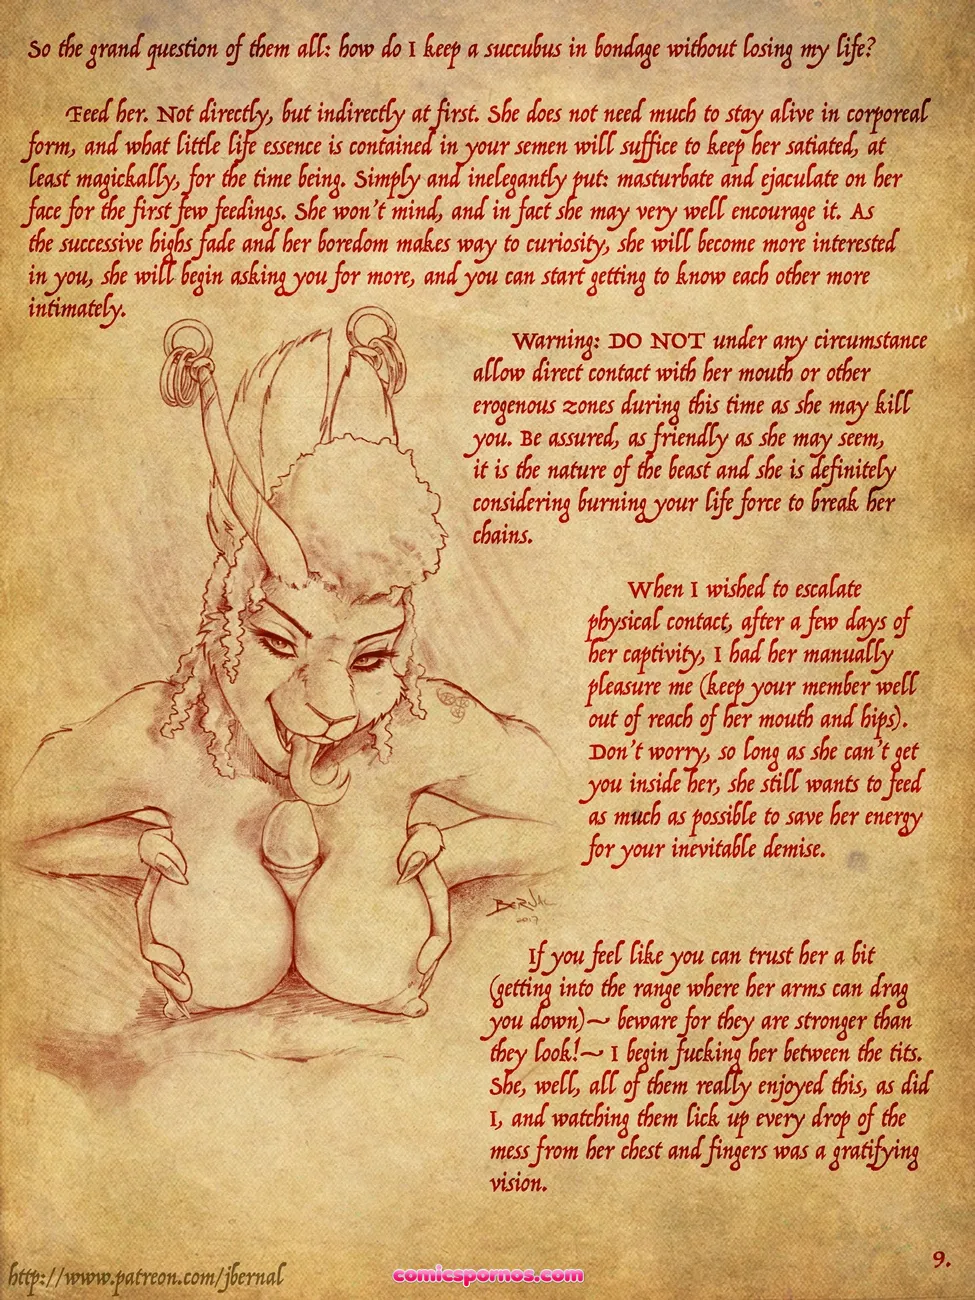 So the grand question of them all: how do I keep a succubus in bondage without losing my life?
Feed her. Not directly, but indirectly at first. She does not need much to stay alive in corporeal
form, and what little life essence is contained in your semen will suffice to keep her satiated, at
least magickally, for the time being. Simply and inelegantly put: masturbate and ejaculate on her
face for the first few feedings. She won't mind, and in fact she may very well encourage it. As
the successive highs fade and her boredom makes way to curiosity, she will become more interested
in you, she will begin asking you for more, and you can start getting to know each other more
intimately.
Warning: DO NOT under any circumstance
allow direct contact with her mouth or other
erogenous zones during this time as she may kill
you. Be assured, as friendly as she may seem,
it is the nature of the beast and she is definitely
considering burning your life force to break her
chains.
When I wished to escalate
physical contact, after a few days of
her captivity, I had her manually
pleasure me (keep your member well
out of reach of her mouth and hips).
Don't worry, so long as she can't get
you inside her, she still wants to feed
as much as possible to save her energy
for your inevitable demise.
BERNAL
2017
If you feel like you can trust her a bit
(getting into the range where her arms can drag
you down)~ beware for they are stronger than
they look!~ I begin fucking her between the tits.
She, well, all of them really enjoyed this, as did
I, and watching them lick up every drop of the
mess from her chest and fingers was a gratifying
vision.
9.
http://www.patreon.com/jbernal
comicspornos.com